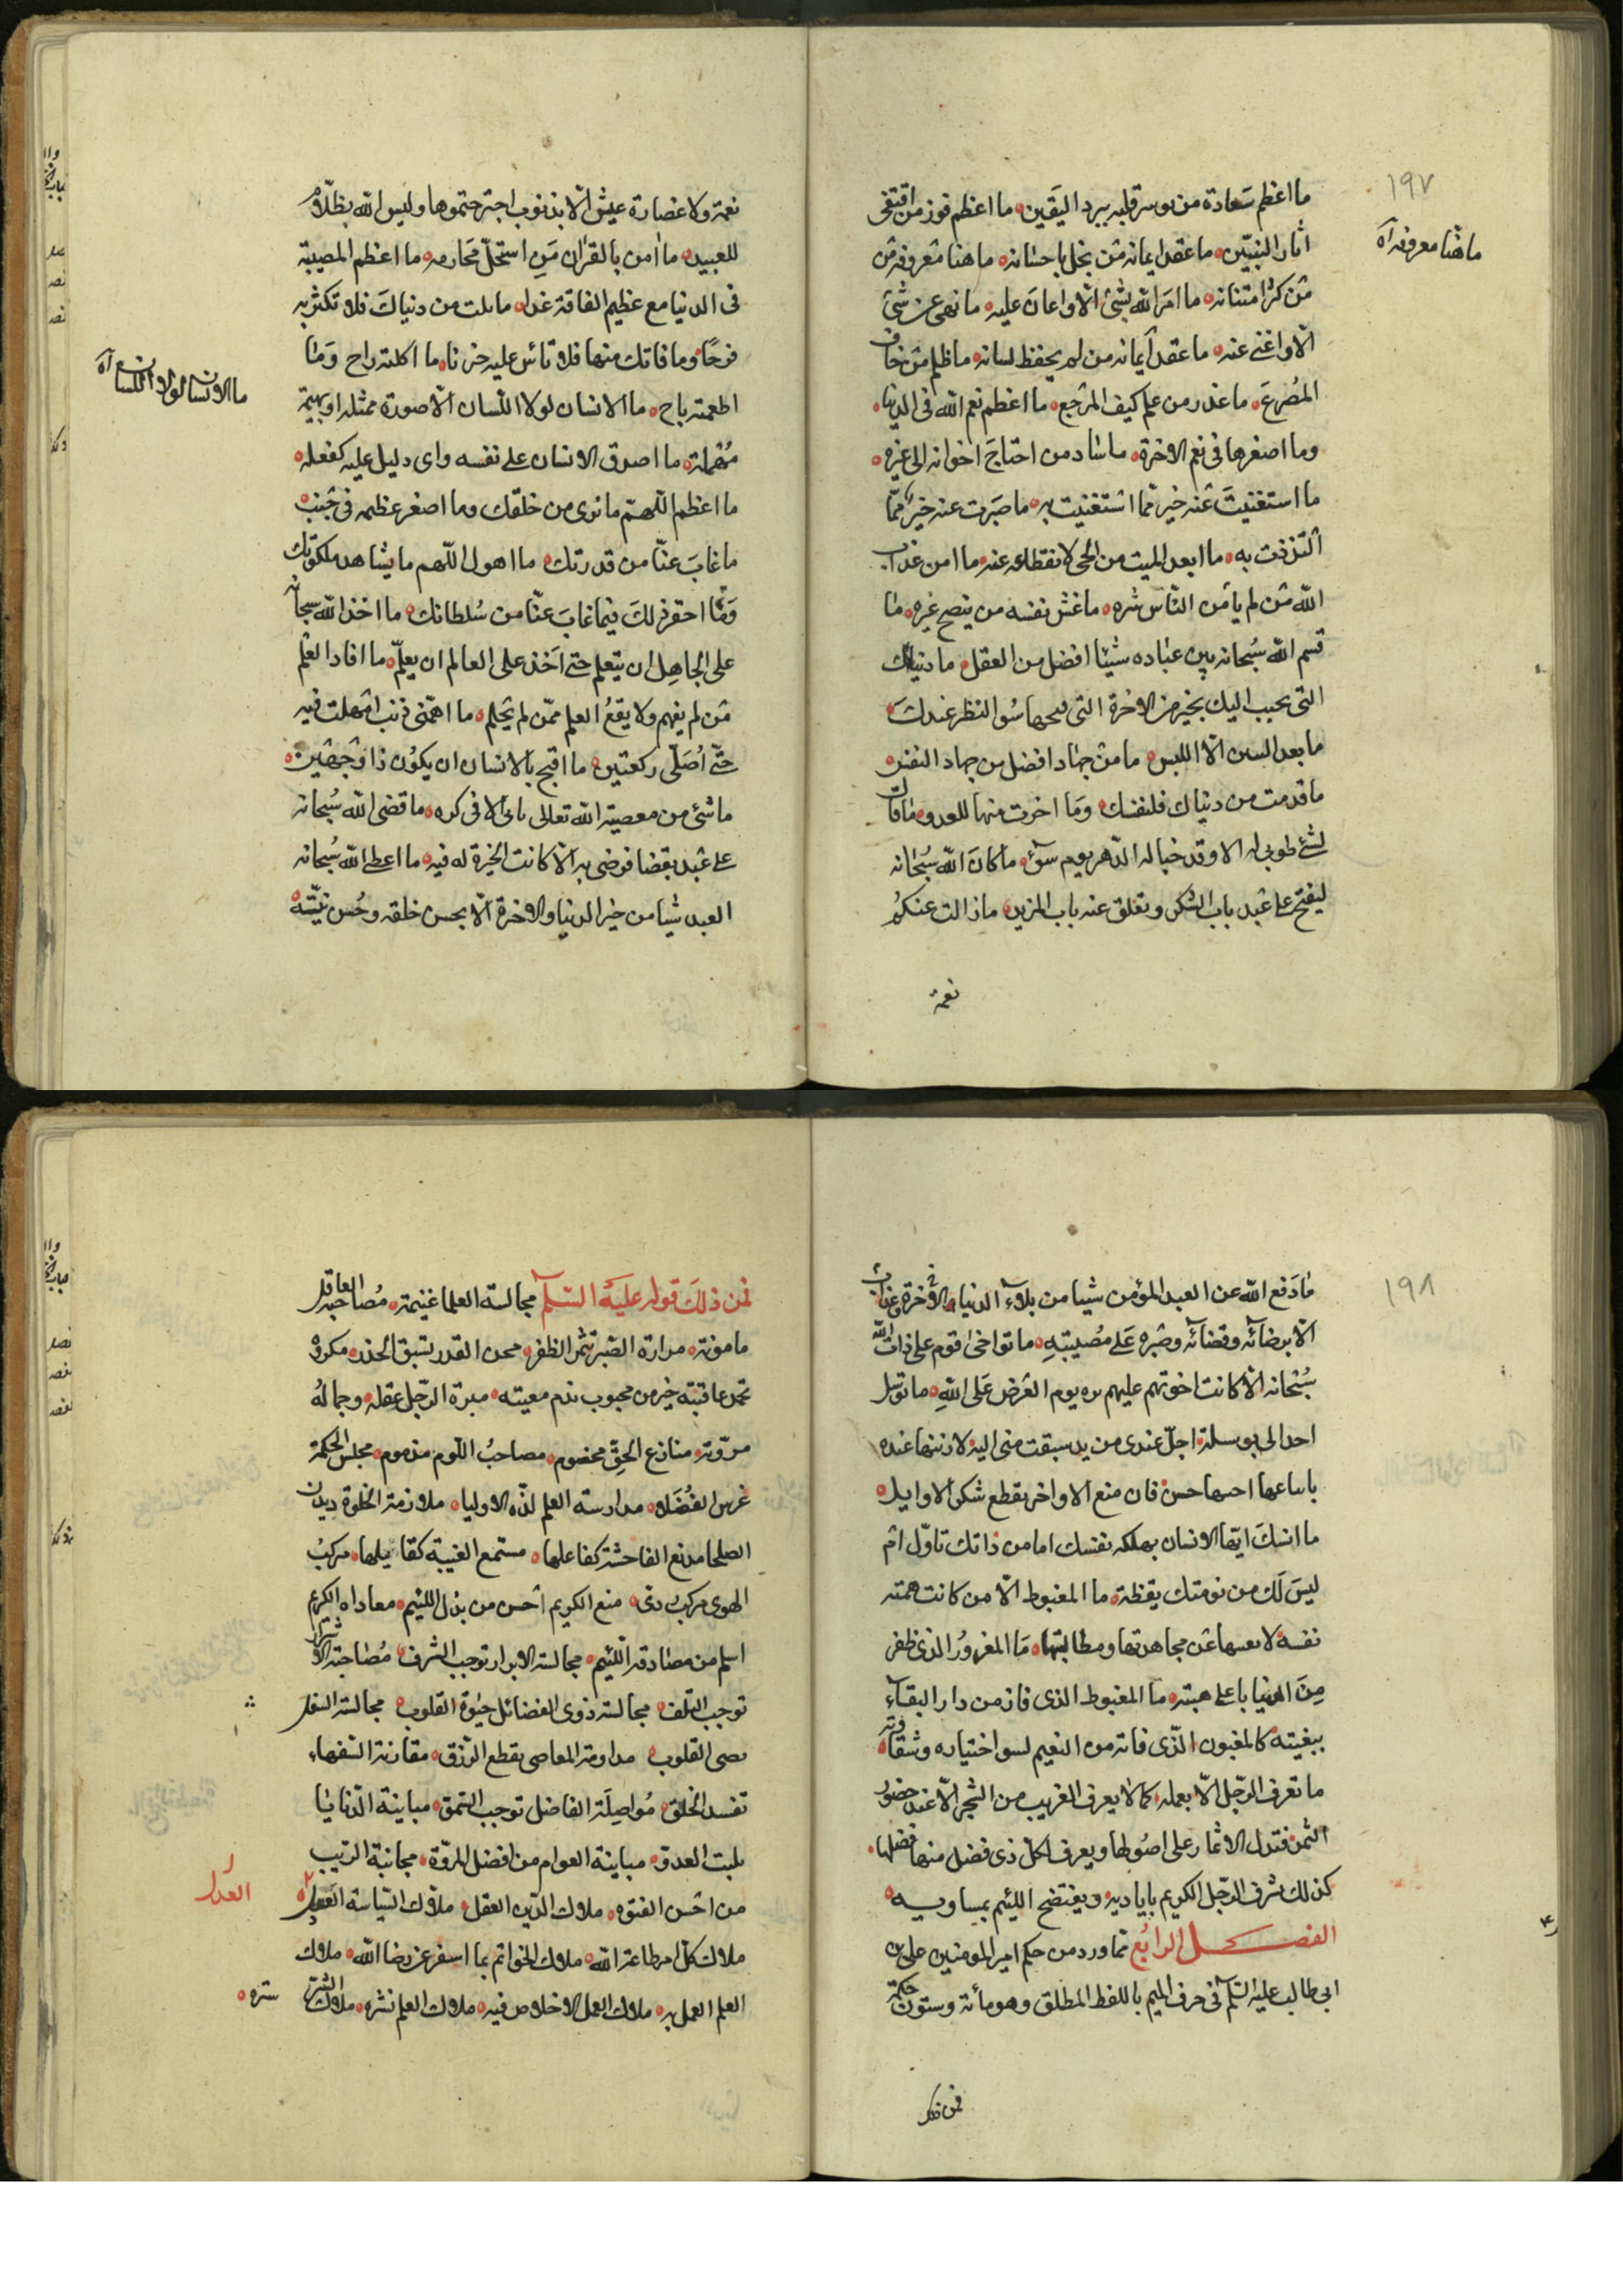 ١٩٧
ما هنا معروفه آه
ما اعظم سعادة من بوشر قلبه ببرد اليقين ما اعظم فوز من اقتفى
اثار النبيّين ما عقد ايمانه من بخل باحسانه ما هنا معروفه من
من كثر امتنانه ما امر الله بشئ الّا واعان عليه ما نهى عن شئ
الّا واغنى عنه ما عقد ايمانه من لم يحفظ لسانه ما ظلم من خاف
المصرع ما غدر من علم كيف المرجع ما اعظم نعم الله فى الدنيا
وما اصغرها فى نعم الاخرة ما ساد من احتاج اخوانه الى غيره
ما استغنيت عنه خير ممّا استغنيت به ما صبرت عنه خير ممّا
التذذت به ما ابعد الميت من الحى لانقطاعه عنه ما امن عذاب
الله من لم يأمن الناس شره ما غش نفسه من ينصح غيره ما
قسم الله سبحانه بين عباده شيئا افضل من العقل ما دنياك
التى تحبب اليك بخير من الاخرة التى قبحها سوا النظر عندك
ما بعد السن الّا اللبس ما من جهاد افضل من جهاد النفس
ما قدمت من دنياك فلنفسك وما اخرت منها للعدو ما قال
لشئ طوبى له الا وقد خبا له الدهر يوم سوء ما كان الله سبحانه
ليفتح على عبد باب الشكر وتغلق عنه باب المزيد ما زالت عنكم
نعمة
نعمة ولا غضارة عيش الّا بذنوب اجترحتموها وليس الله بظلّام
للعبيد ما امن بالقران من استحلّ محارمه ما اعظم المصيبة
فى الدنيا مع عظيم الفاقة غدا ما نلت من دنياك فلا تكثر به
فرحا وما فاتك منها فلا تاس عليه حزنا ما اكلته راح وما
اطعمته باح ما الانسان لولا اللسان الّا صورة ممثله او بهيمة
ما الانسان لولا اللسان آه
مهملة ما اصدق الانسان على نفسه واى دليل عليه كفعله
ما اعظم اللهمّ ما نرى من خلقك وما اصغر عظمه فى جنب
ما غاب عنّا من قدرتك ما اهول اللّهم ما يشاهد ملكوتك
وما احقر ذلك فيما غاب عنّا من سلطانك ما اخذ الله سبحانه
على الجاهل ان يتعلم حتى اخذ على العالم ان يعلّم ما افاد العلم
من لم يفهم ولا يقع العلم ممّن لم يحلم ما اهمّنى ذنب امهلت فيه
حتّى اصلّى ركعتين ما اقبح بالانسان ان يكون ذا وجهين
ما شئ من معصية الله تعالى ياتى الا فى كره ما قضى الله سبحانه
على عبد بقضا فرضى به الّا كانت الخيرة له فيه ما اعطى الله سبحانه
العبد شيا من خير الدنيا والاخرة الّا بحسن خلقه وحسن نيّته
١٩٨
ما دفع الله عن العبد المؤمن شيا من بلاء الدنيا والاخرة وعذاب
الّا برضائه وقضائه وصبره على مصيبته ما تواخى قوم على ذات الله
سبحانه الّا كانت اخوتهم عليهم تره يوم العرض على الله ما توسّل
احد الى بوسيلة اجلّ عندى من يد سبقت منى اليه لازينها عنده
باتباعها احتها حسن فان منع الاواخر تقطع شكر الاوايل
ما انسك ايّها الانسان بهلكه نفسك اما من ذاتك تاوّل ام
ليس لك من نومتك يقظة ما المغبوط الّا من كانت همته
نفسه لا يعيبها عن مجاهدتها ومطالبتها ما المغرور الذى ظفر
من الدنيا باعلى هبته ما المغبوط الذى فاز من دار البقاء
ببغيته كالمغبون الّذى فاته من النعيم لسو اختياره وشقاوته
ما تعرف الرجل الّا بعمله كما لا يعرف الغريب من الشجر الّا عند حضور
الثمر فتدل الاثمار على اصولها ويعرف لكلّ ذى فضل منها فضلها
كذلك شرف الرجل الكريم باياديه ويفتضح اللئيم بمساويه
الفصل الرابع ممّا ورد من حكم امير المومنين على بن
ابى طالب عليه السّلم فى حرف الميم باللفظ المطلق وهو مأئة وستون حكمة
فمن ذلك
فمن ذلك قوله عليه السّلم مجالسة العلما غنيمة مصاحبة العاقل
مامونة مرارة الصّبر تثمر الظفر محن القدر تسبق الحذر مكروه
تحمد عاقبته خير من محبوب تذم مغبته ميزة الرّجل عقله وجماله
مروّته منازع الحقّ مخصوم مصاحب اللّوم مذموم مجلس الحكمة
غرس الفضلاء مدارسة العلم لذّه الاوليا ملازمة الخلوة ديدن
الصلحا مذيع الفاحشة كفاعلها مستمع الغيبة كقايلها مركب
الهوى مركب ردى منع الكريم احسن من بذل اللئيم معاداه الكريم
اسلم من مصادقة اللئيم مجالسة الابرار توجب الشرف مصاحبة الاشرار
توجب التلف مجالسة ذوى الفضائل حيوة القلوب مجالسة السفل
تضى القلوب مداومة المعاصى يقطع الرّزق مقارنة السّفهاء
تفسد الخلق مواصلة الفاضل توجب السّمو مباينة الدّنايا
يكبت العدوّ مباينة العوام من افضل المروّة مجانبة الريب
من احسن الفتوه ملاك الدّين العقل ملاك السّياسة العدل
العدل
ملاك كلّ امر طاعة الله ملاك الخواتم بما اسفر عن رضا الله ملاك
العلم العمل به ملاك العمل الاخلاص فيه ملاك العلم نشره ملاك السّر
ستره